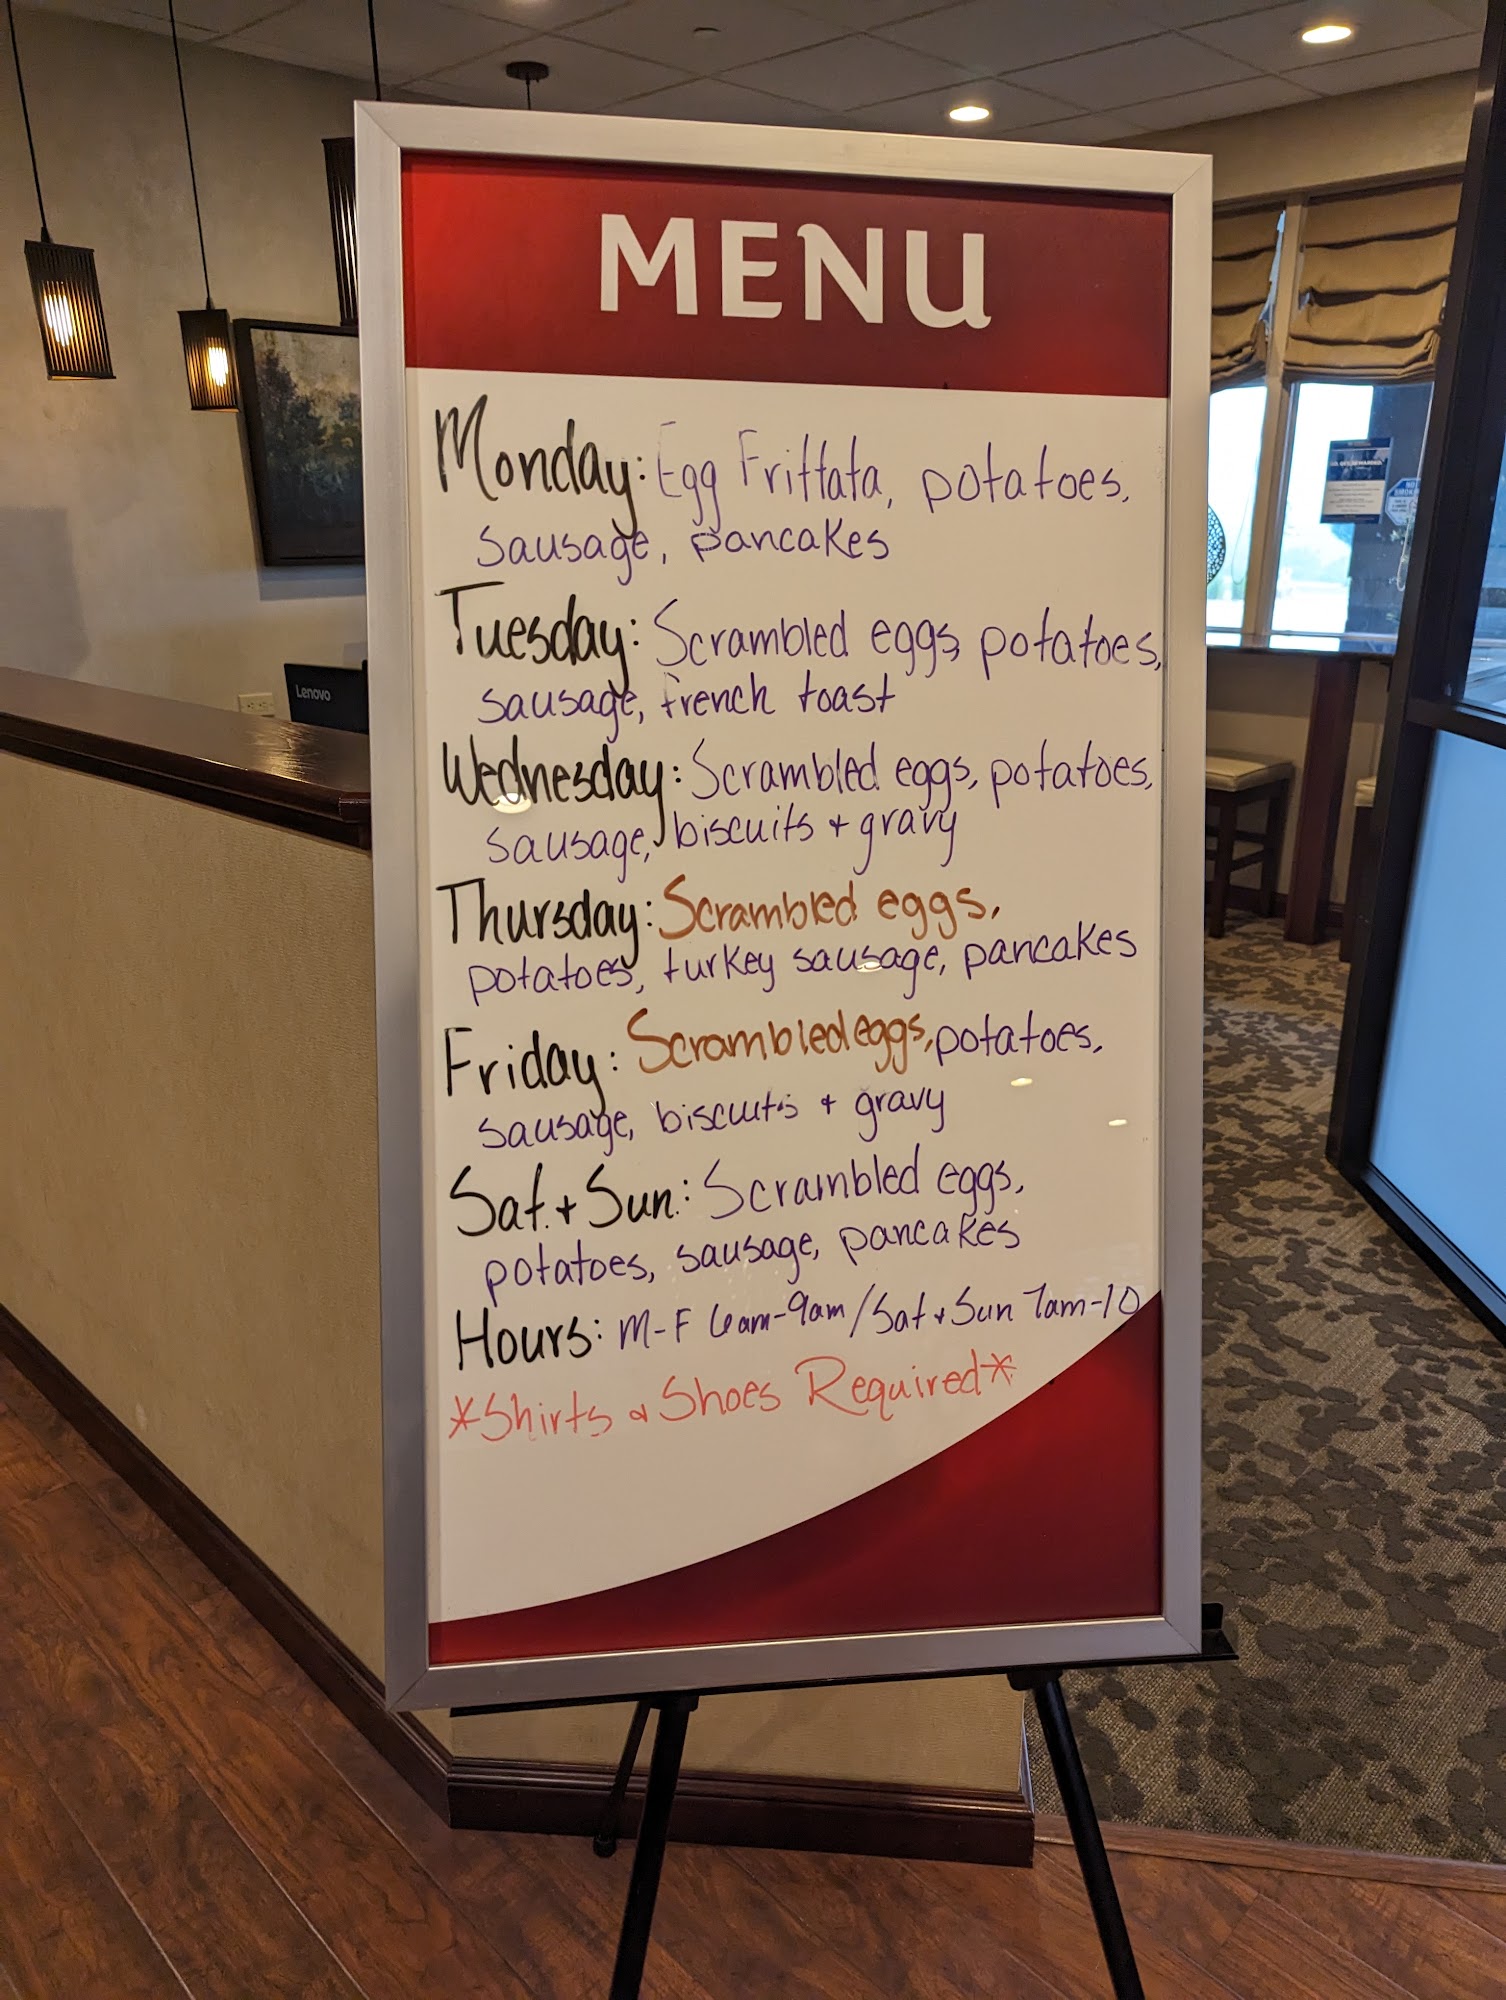 MENU
Monday: Egg Frittata, potatoes,
sausage, pancakes
Tuesday: Scrambled eggs, potatoes,
sausage, french toast
Wednesday: Scrambled eggs, potatoes,
sausage, biscuits + gravy
Thursday: Scrambled eggs,
potatoes, turkey sausage, pancakes
Friday: Scrambled eggs, potatoes,
sausage, biscuits + gravy
Sat. + Sun.: Scrambled eggs,
potatoes, sausage, pancakes
Hours: M-F 6am-9am/Sat + Sun 7am-10
*Shirts & Shoes Required*
Lenovo